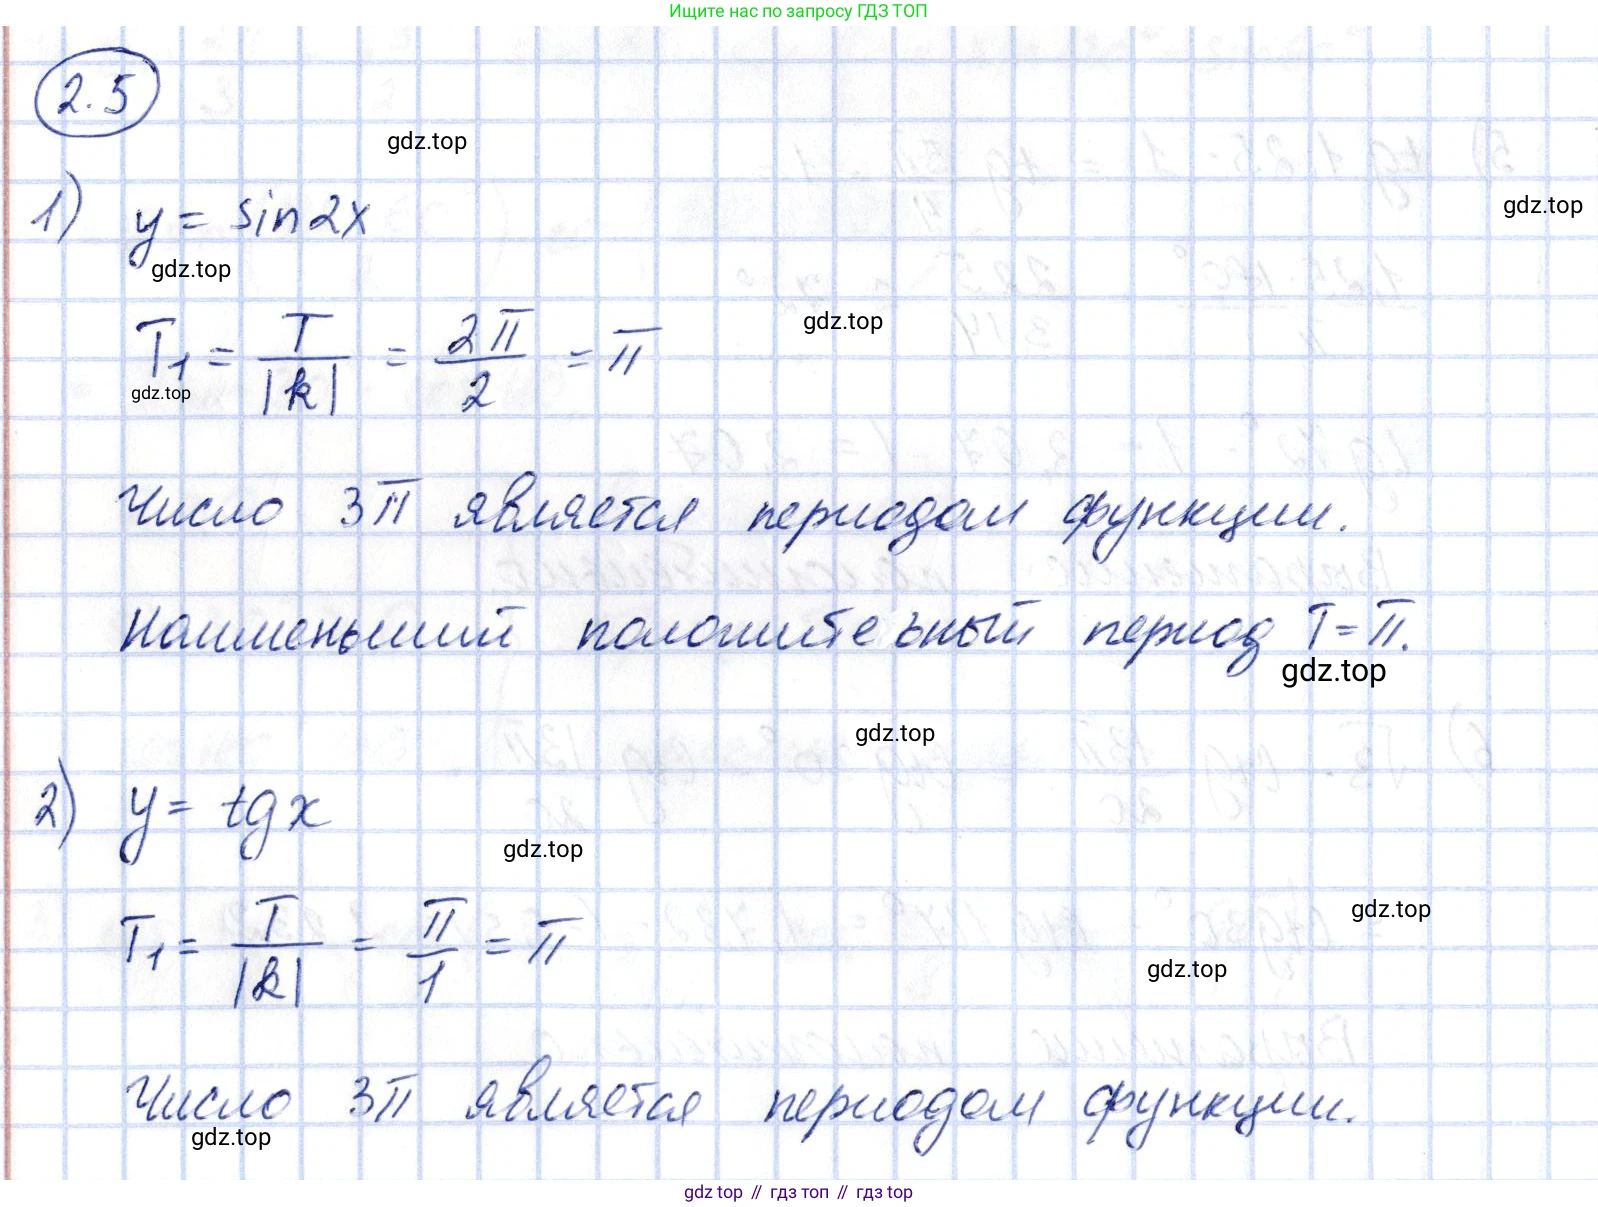 Ищите нас по запросу ГДЗ ТОП
2.5
gdz.top
1) y = sin2x
gdz.top
gdz.top
T₁ = T/|k| = 2π/2 = π
gdz.top
gdz.top
Число 3π является периодом функции.
Наименьший положите ьный период T=π.
gdz.top
gdz.top
2) y = tgx
gdz.top
T₁ = T/|k| = π/1 = π
gdz.top
gdz.top
Число 3π является периодом функции.
gdz.top
gdz top // гдз топ // gdz top